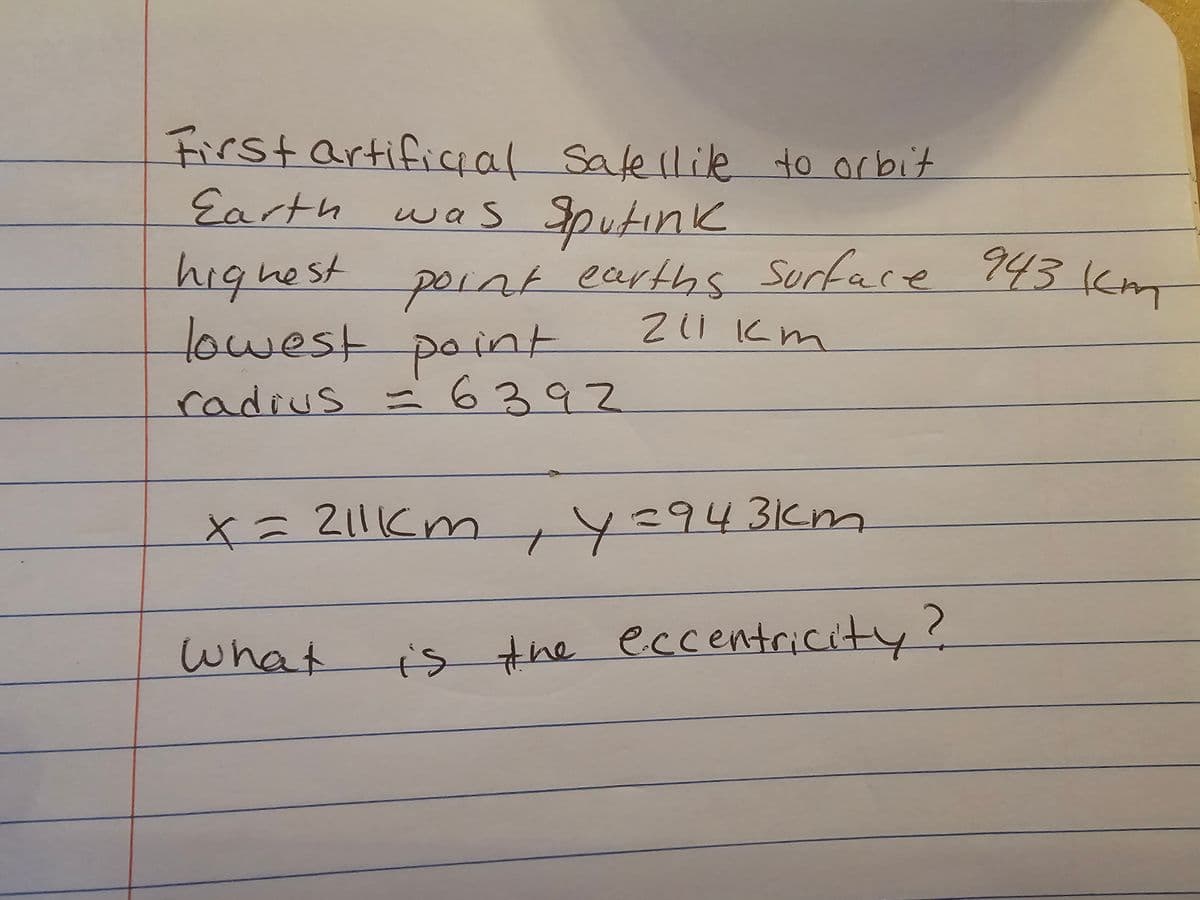 First artificial Satellite to orbit
Earth was Sputink
highest point earths Surface 943 km
lowest point 211 km
radius = 6392
x = 211km , y = 943km
What is the eccentricity?